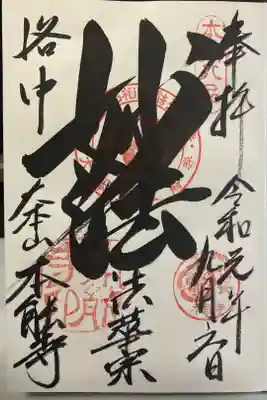 奉拝
令和元年
九月六日
妙法
法華宗
洛中
大本山 本能寺